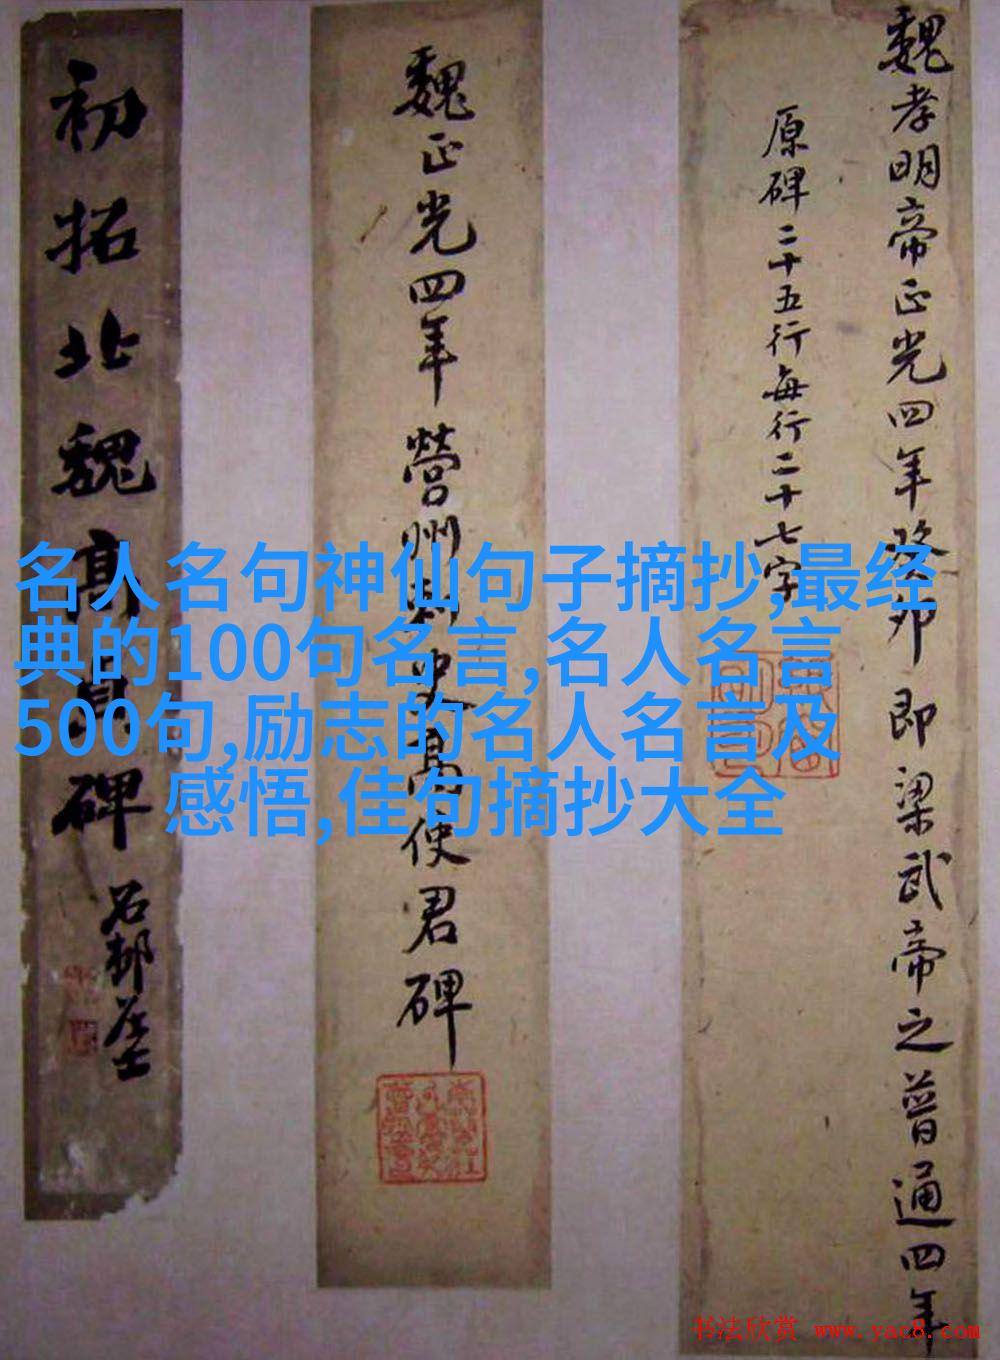 魏孝明帝正光四年癸卯即梁武帝之普通四年
原碑二十五行每行二十七字
魏正光四年營州刺史高使君碑
初拓北魏高貞碑
石邨居士
名人名句神仙句子摘抄,最经
典的100句名言,名人名言
500句,励志的名人名言及
感悟,佳句摘抄大全
书法欣赏 www.yac8.com